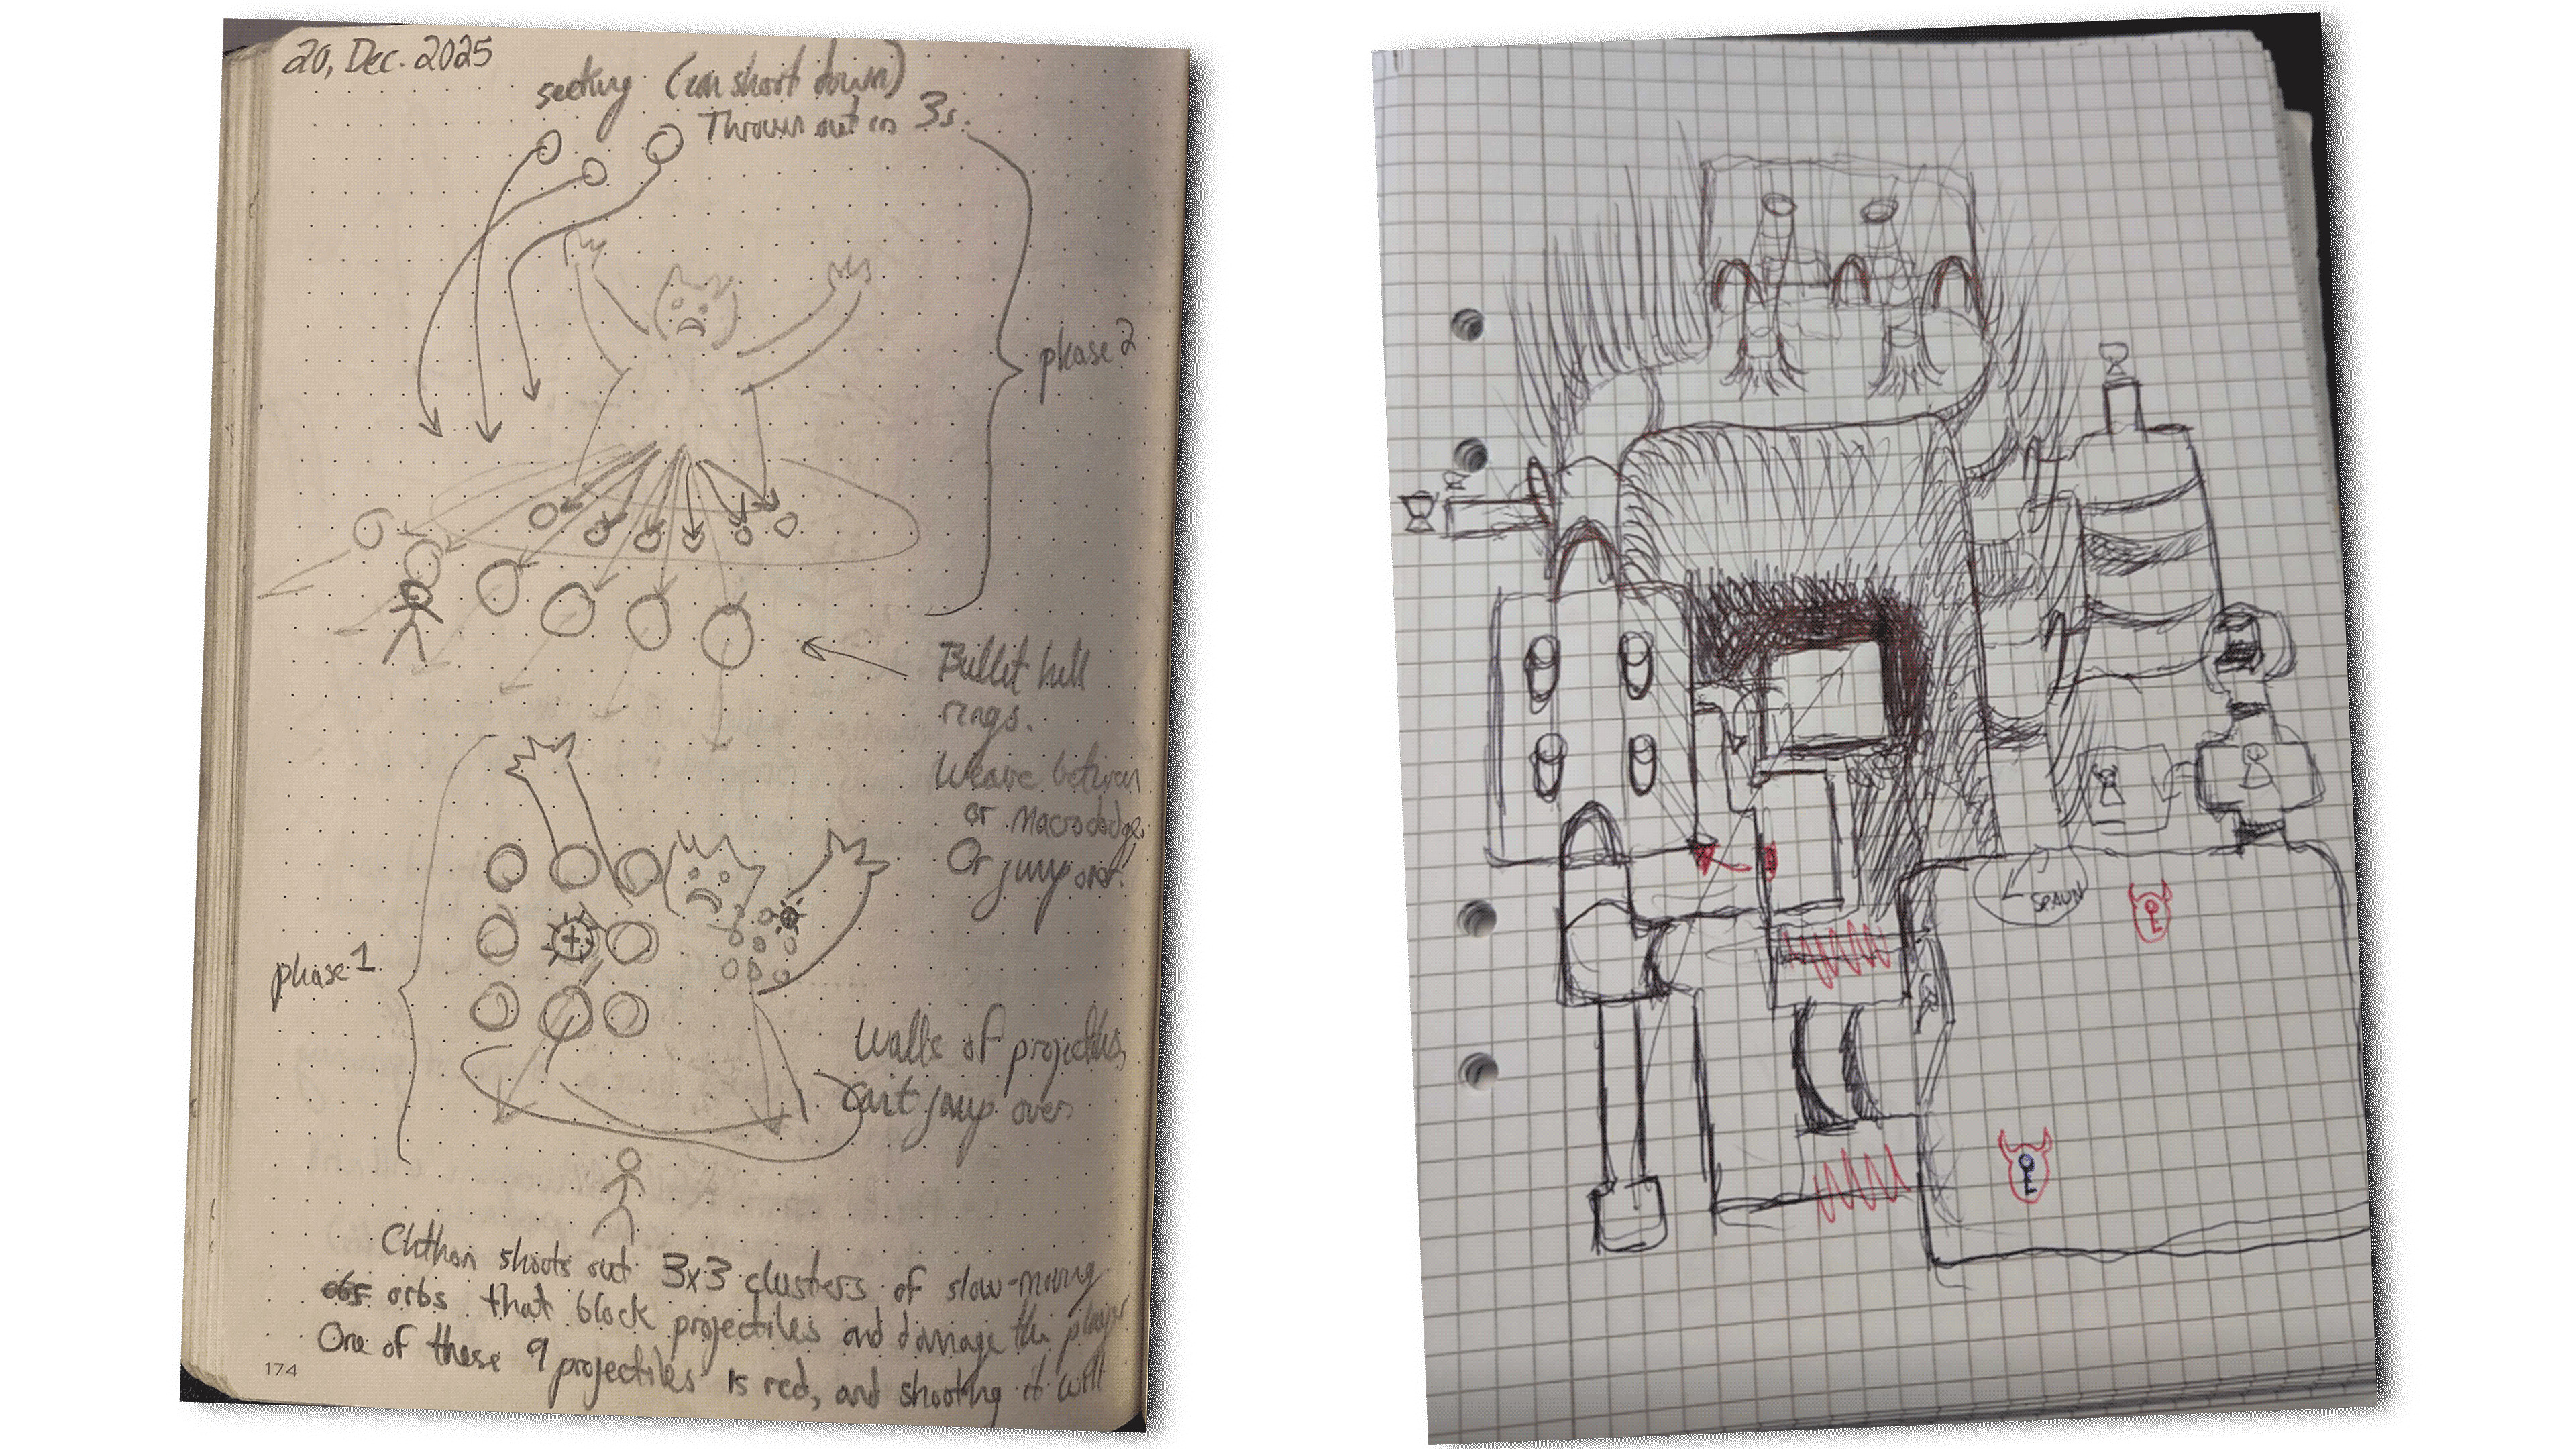 20, Dec. 2025
seeking (can shoot down)
Thrown out in 3s.
phase 2
Bullet hell
rings.
Weave between
or Macrododge.
Or jump over.
phase 1
Walls of projectiles,
can't jump over
Chthon shoots out 3x3 clusters of slow-moving
orbs that block projectiles and damage the player
One of these 9 projectiles is red, and shooting it will
174
SPAWN